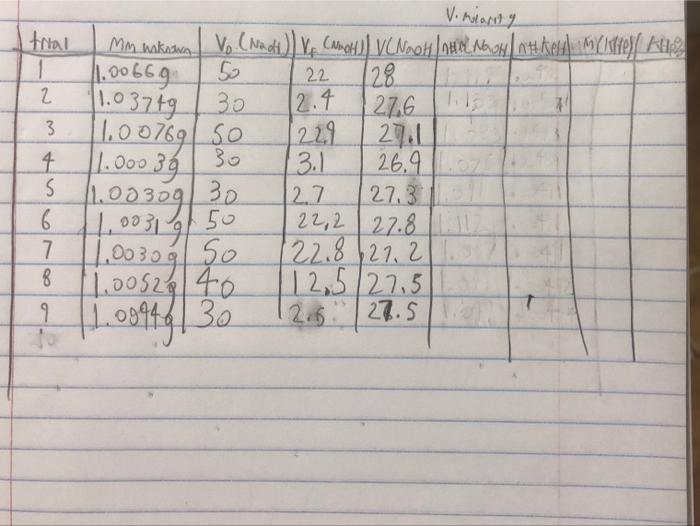 V. molarity
trial Mm unknown V₀ (NaOH) V_f (NaOH) V(NaOH) NaOH M(KHP)
1 1.0066g 50 22 28
2 1.0374g 30 2.4 27.6
3 1.0076g 50 22.9 27.1
4 1.0003g 30 3.1 26.9
5 1.0030g 30 2.7 27.3
6 1.0031g 50 22.2 27.8
7 1.0030g 50 22.8 27.2
8 1.0052g 40 12.5 27.5
9 30 2.5 27.5